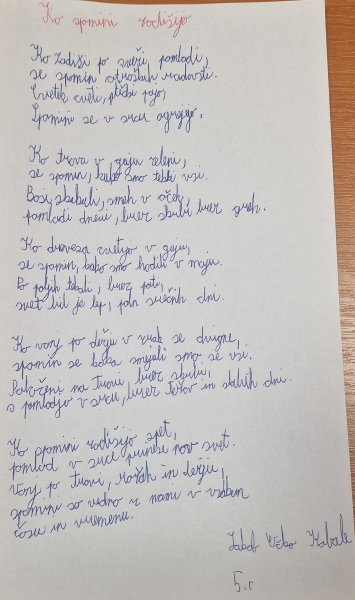 Ko spomini zadišijo
Ko zadiši po sveži pomladi,
se spomin otroških radosti.
Cvetek cveti, ptički pojo,
Spomini se v srcu ogrejejo.
Ko trava v gaju zeleni,
se spomin, kako smo tekli vsi.
Bosi, skakali, smeh v očeh,
pomladi dnevi, brez skrbi, brez
Ko drevesa cvetijo v gaju,
se spomin, kako smo hodili v maju.
Po poljih tekali, brez poti,
svet bil je lep, poln srečnih dni.
Ko vonj po dežju v zrak se dvigne,
spomin se kako smejali smo se vsi.
na travi, brez skrbi,
s pomladjo v srcu, brez težav in slabih dni.
Ko spomini zadišijo spet,
pomlad v srce prinese nov svet.
Vonj po travi, rožah in dežju,
spomini so vedno z nami v vsakem
času in vremenu.
Jakob
5. r